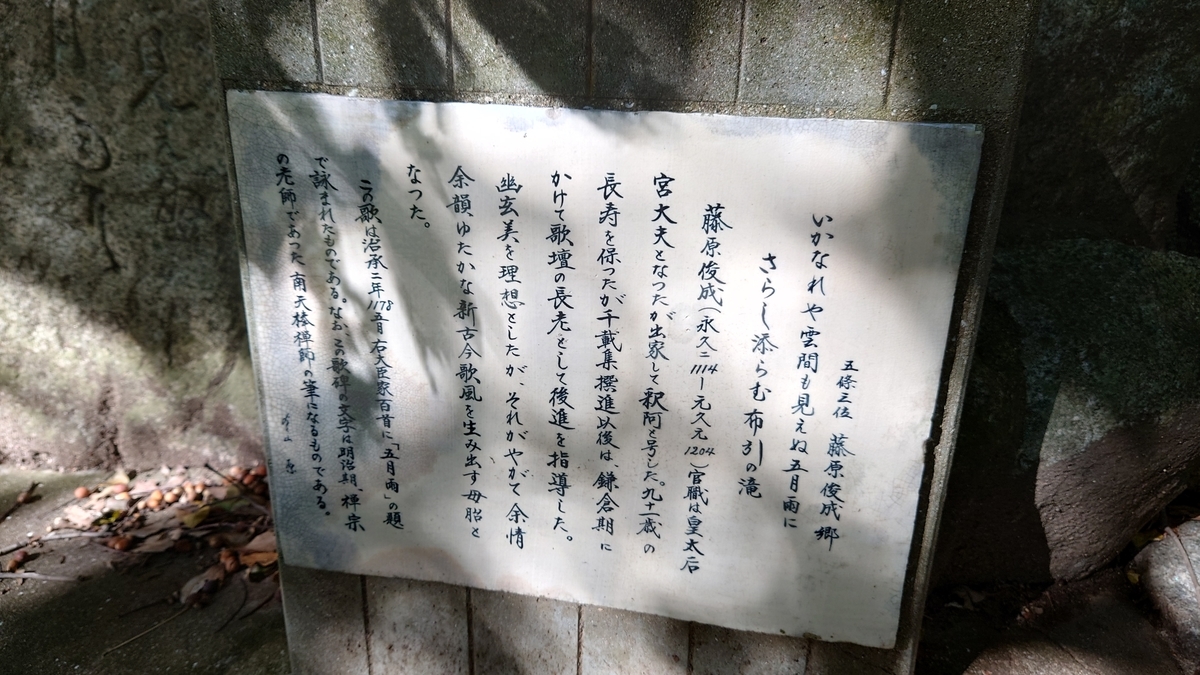 五條三位 藤原俊成 郷
いかなれや雲間も見えぬ五月雨に
さらし添らむ布引の滝
藤原俊成(永久二1114ー元久元1204)官職は皇太后
宮大夫となったが出家して釈阿と号した。九十一歳の
長寿を保ったが千載集撰進以後は、鎌倉期に
かけて歌壇の長老として後進を指導した。
幽玄美を理想としたが、それがやがて余情
余韻ゆたかな新古今歌風を生み出す母胎と
なった。
この歌は治承二年1178五月右大臣家百首に「五月雨」の題
で詠まれたものである。なお、この歌碑の文字は明治期、禅宗
の老師であった南天棒禅師の筆になるものである。